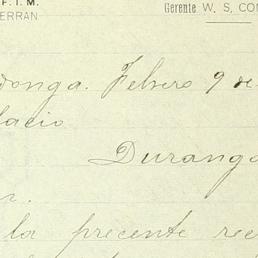 F. I. M.
ERRAN
Gerente W. S. CON
donga. Febrero 9 de
lacio
Durango
n.
la precente rec